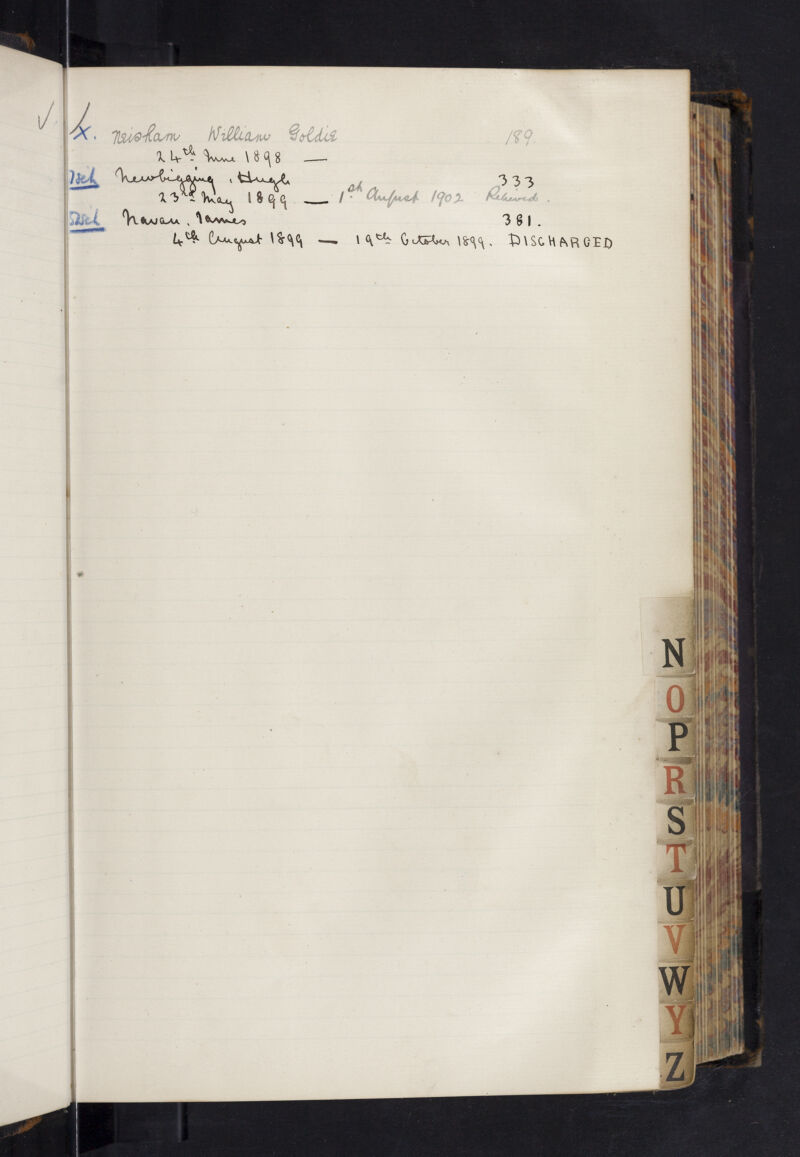 x. Neisham William Goldie 189
24th June 1898 —
Newbigging, Hugh 333
23rd May 1899 — 1st August 1902 Relieved.
Navan, James 381.
4th August 1899 — 19th October 1899. DISCHARGED
N
O
P
R
S
T
U
V
W
Y
Z